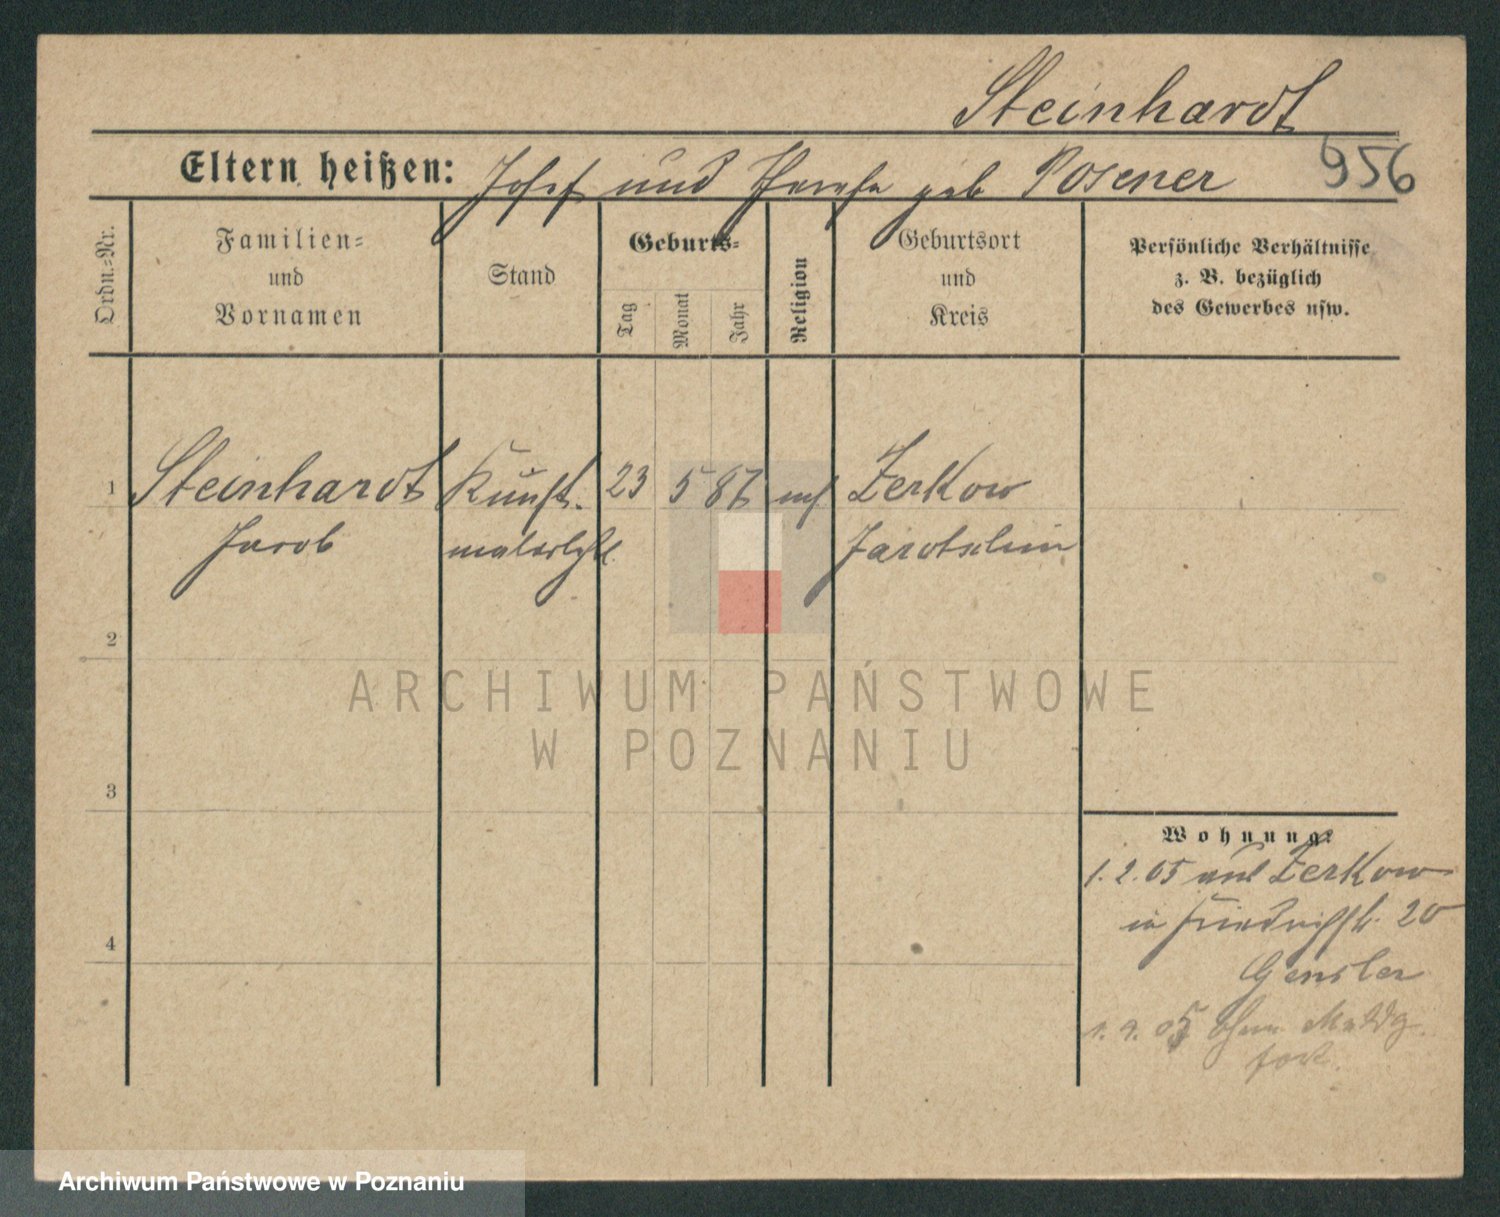 Steinhardt
956
Eltern heißen: Josef und geb Posener
Ordn.-Nr.
Familien-
und
Vornamen
Stand
Geburts-
Tag
Monat
Jahr
Religion
Geburtsort
und
Kreis
Persönliche Verhältnisse
z. B. bezüglich
des Gewerbes usw.
1 Steinhardt Kunst- 23 5 87 mos Zerkow
Jacob Jarotschin
2
3
4
Wohnung:
1.2.05 aus Zerkow
in Friedrichstr. 20
Gensler
1.9.05 ohne Meldg.
fort.
ARCHIWUM PAŃSTWOWE
W POZNANIU
Archiwum Państwowe w Poznaniu